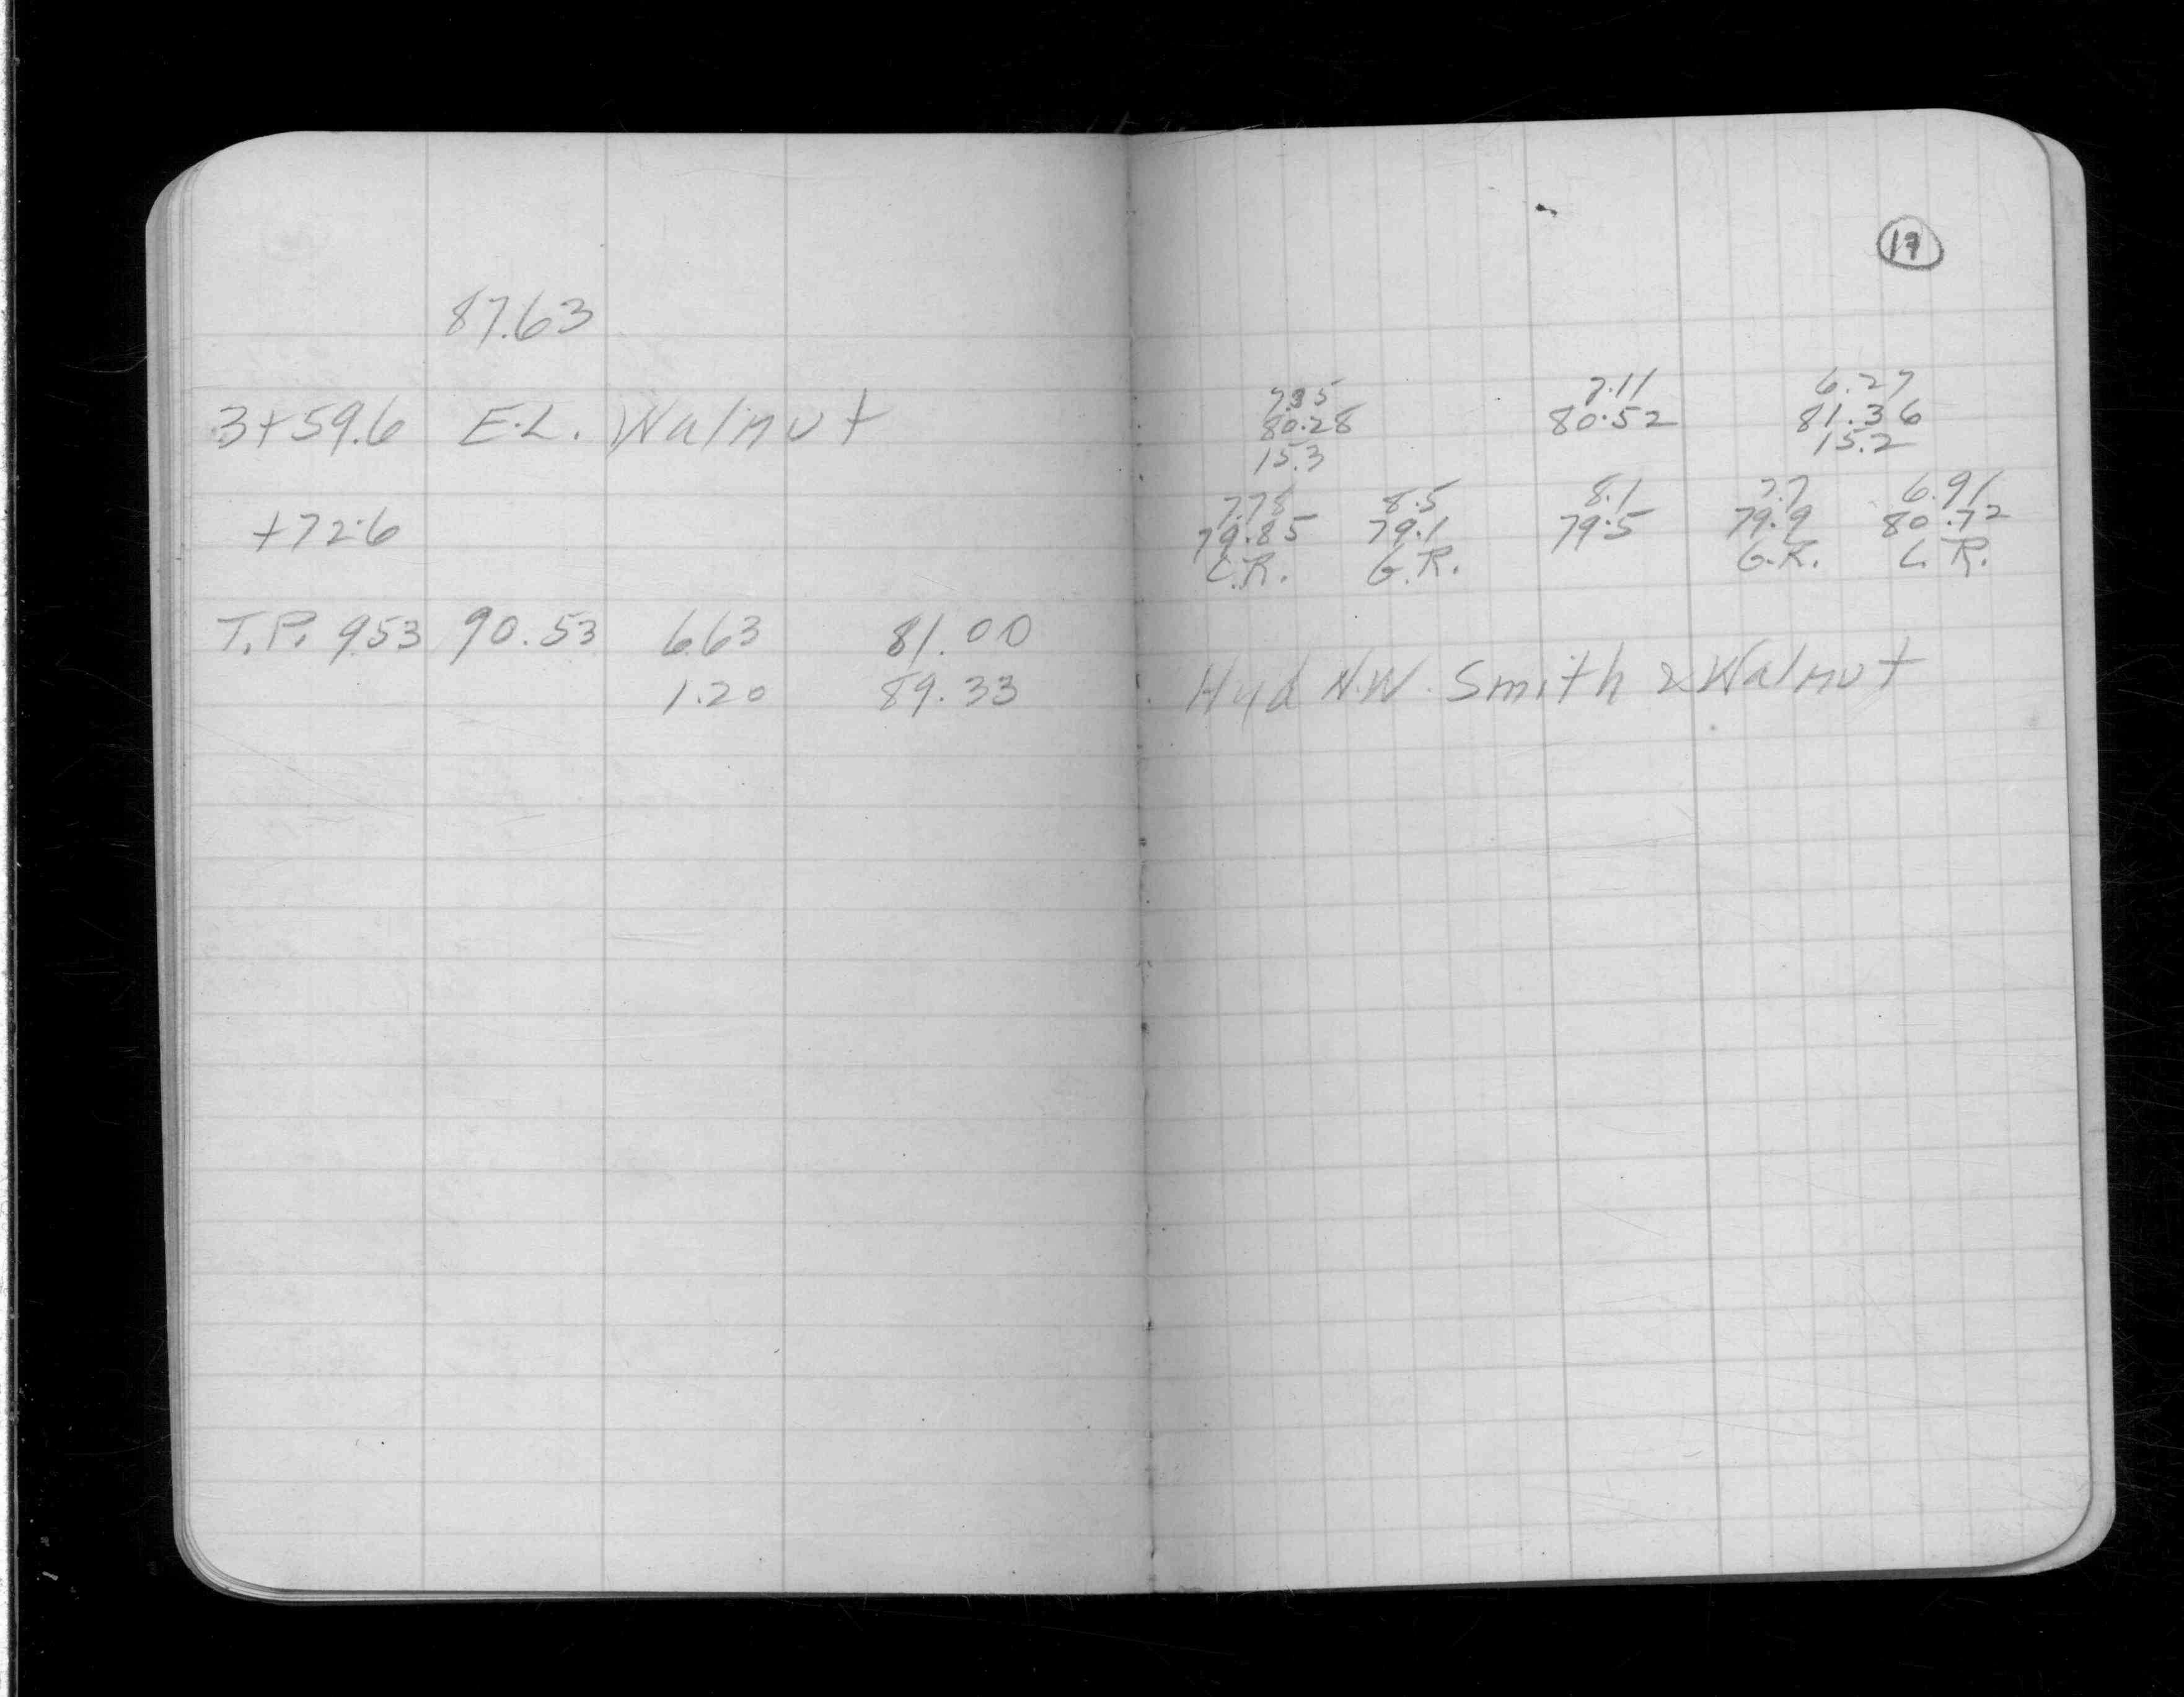 87.63
3+59.6 E.L. Walnut
+72.6
T.P. 9.53 90.53 6.63 81.00
1.20 89.33
17
7.35 7.11 6.27
80.28 80.52 81.36
15.3 15.2
7.78 8.5 8.1 7.7 6.91
79.85 79.1 79.5 79.9 80.72
C.R. G.R. G.R. C.R.
Hyd N.W. Smith & Walnut